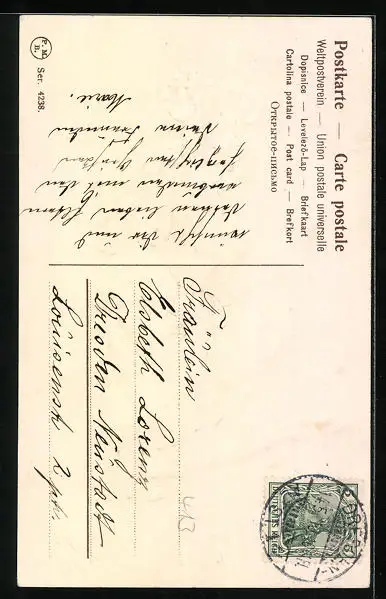 Postkarte — Carte postale
Weltpostverein — Union postale universelle
Dopisnice — Levelező-Lap — Briefkaart
Cartolina postale — Post card — Brefkort
Открытое-письмо
P. M. B.
Ser. 4238.
wünscht Dir und
Deinen lieben Eltern
verbunden mit den
Deine Freundin
Marie.
Fräulein
Elsbeth Lorenz
Dresden Neustadt
Louisenstr. 2 ptr.
413